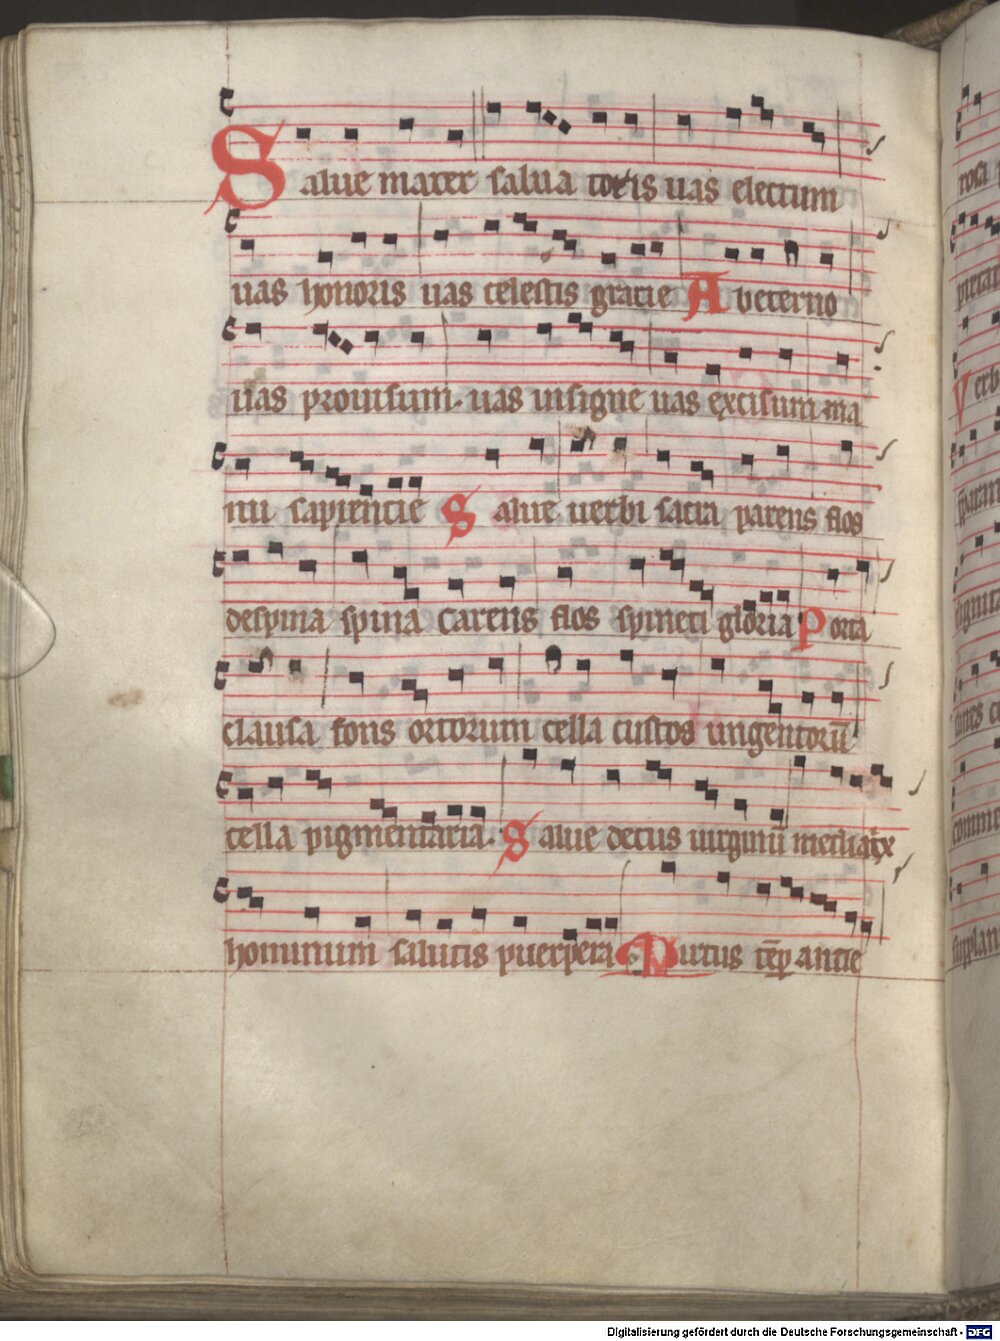 Salue mater saluatoris uas electum
uas honoris uas celestis gracie A beterno
uas prouisum. uas insigne uas excisum ma
nu sapiencie Salue uerbi sacra parens flos
despina spina carens flos spineti gloria Porta
clausa fons ortorum cella custos ungentorū
cella pigmentaria. Salue decus uirginū mediatix
hominum salutis puerpera. Mirtus tēp ancie
rosa
pietat
Verb
comm
supplan
Digitalisierung gefördert durch die Deutsche Forschungsgemeinschaft - DFG